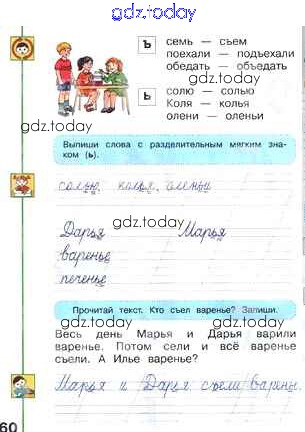 gdz.today
Ъ
семь — съем
поехали — подъехали
обедать — объедать
gdz.today
ь
солю — солью
Коля — колья
олени — оленьи
gdz.today
Выпиши слова с разделительным мягким зна-
ком (ь).
gdz.today
солью, колья, оленьи
gdz.today
Дарья Марья
варенье
gdz.today
печенье
Прочитай текст. Кто съел варенье? Запиши.
gdz.today
Весь день Марья и Дарья варили
варенье. Потом сели и всё варенье
съели. А Илье варенье?
gdz.today
Марья и Дарья съели варенье.
60
gdz.today